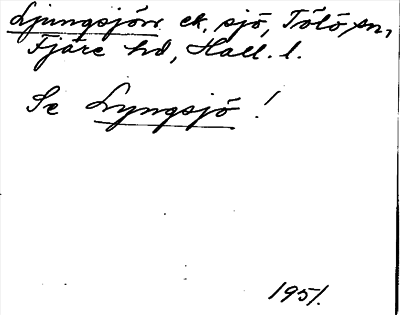 Ljungsjön ek, sjö, Tölö sn,
Fjäre hd, Hall. l.
Se Lyngsjö !
1951.